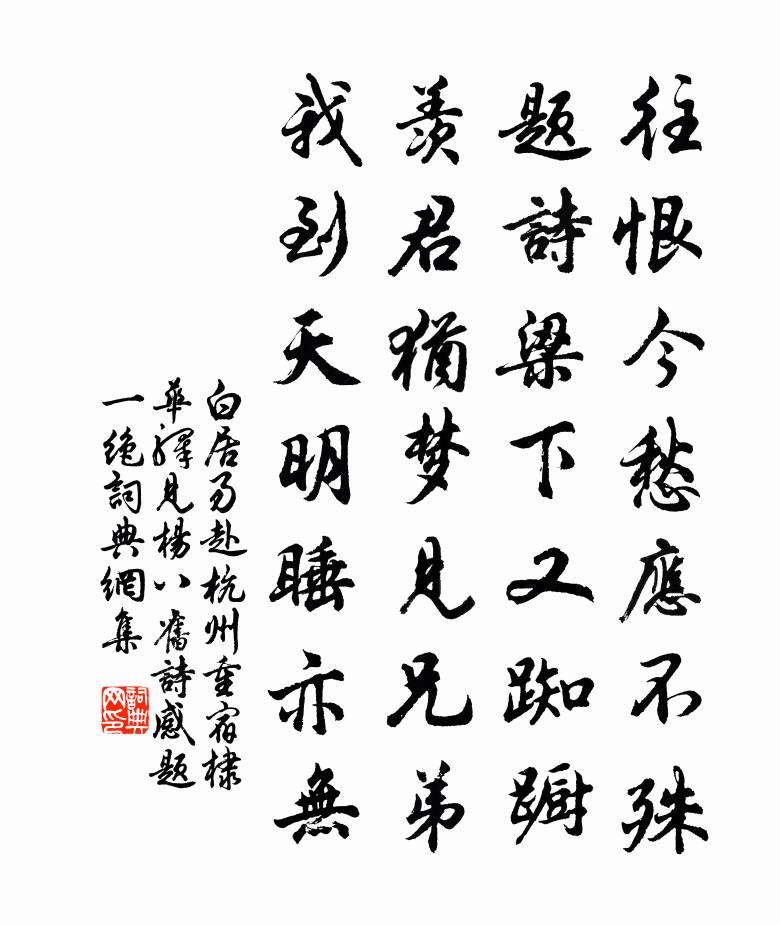 往恨今愁應不殊
題詩梁下又踟躕
羨君猶夢見兄弟
我到天明睡亦無
白居易赴杭州重宿棣
華驛見楊八舊詩感題
一絕詞典網集
詞典网印